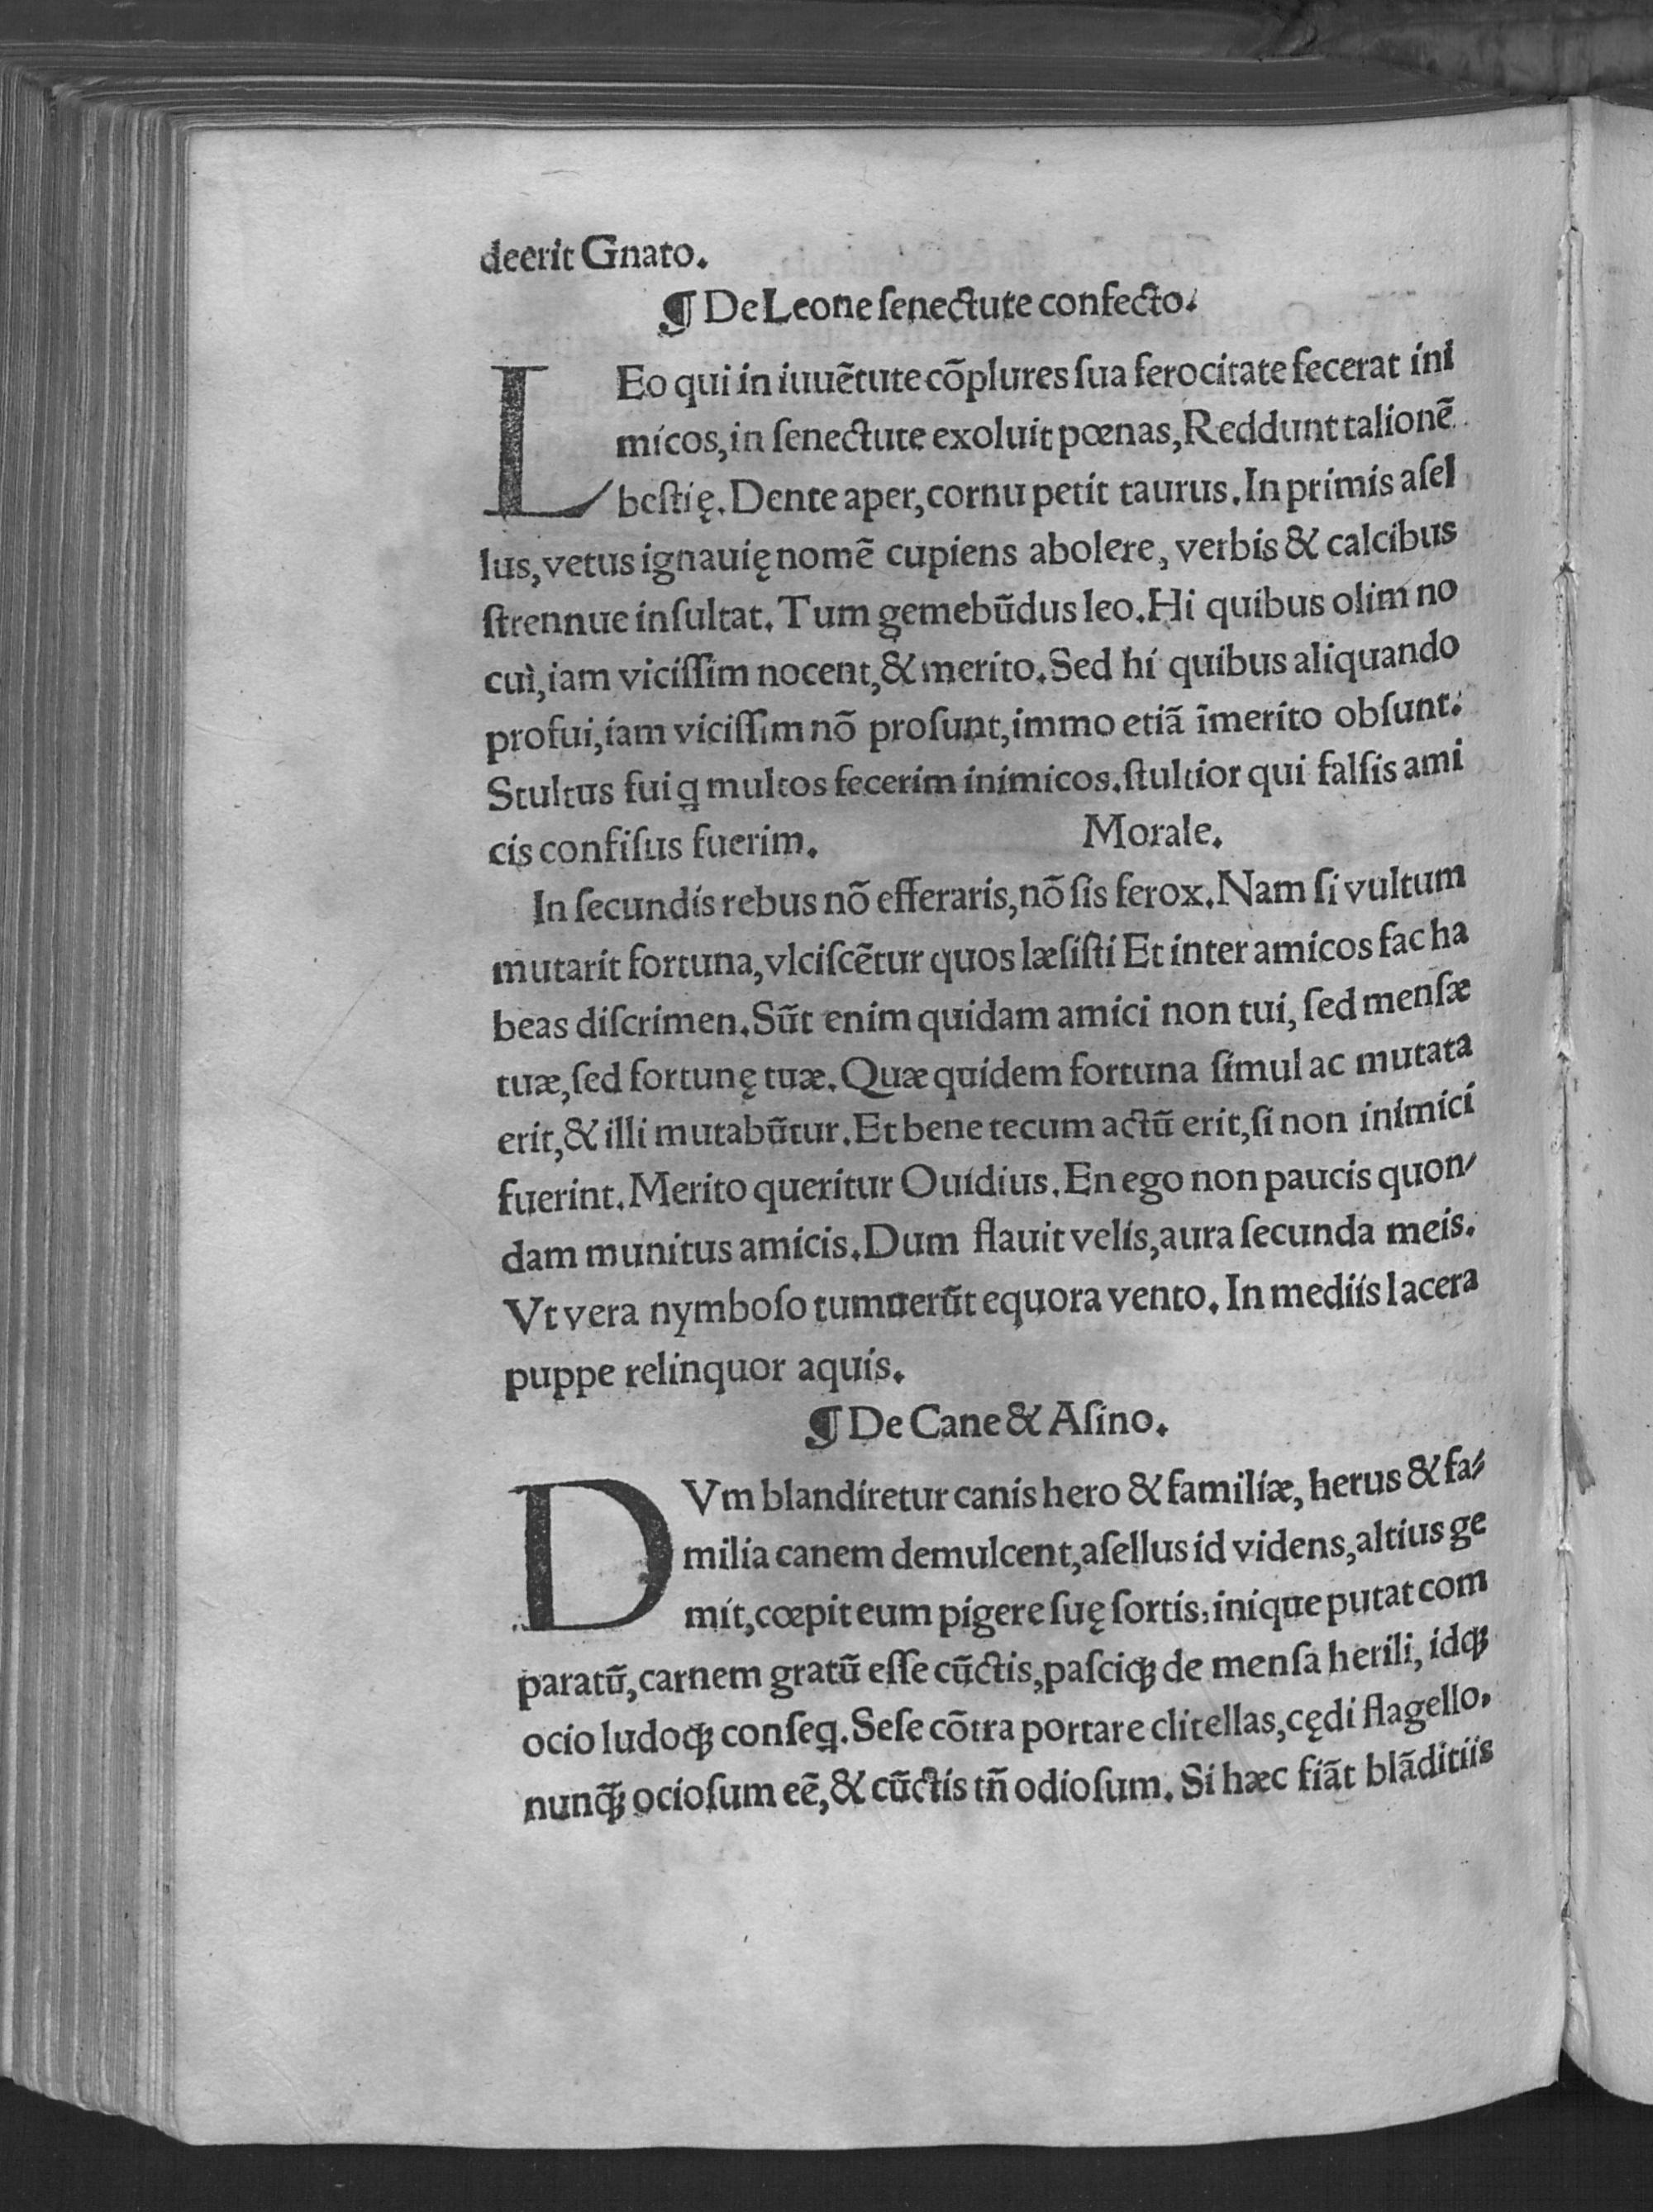 deerit Gnato.
¶ De Leone ſenectute confecto.
LEo qui in iuuẽtute cõplures ſua ferocitate fecerat ini
micos, in ſenectute exoluit pœnas, Reddunt talionẽ
beſtię. Dente aper, cornu petit taurus. In primis aſel
lus, vetus ignauię nomẽ cupiens abolere, verbis & calcibus
ſtrennue inſultat. Tum gemebũdus leo. Hi quibus olim no
cuì, iam viciſſim nocent, & merito. Sed hi quibus aliquando
profui, iam viciſſim nõ proſunt, immo etiã ĩmerito obſunt.
Stultus fui ꝗ multos fecerim inimicos. ſtultior qui falſis ami
cis confiſus fuerim. Morale.
In ſecundis rebus nõ efferaris, nõ ſis ferox. Nam ſi vultum
mutarit fortuna, vlciſcẽtur quos læſiſti Et inter amicos fac ha
beas diſcrimen. Sũt enim quidam amici non tui, ſed menſæ
tuæ, ſed fortunę tuæ. Quæ quidem fortuna ſimul ac mutata
erit, & illi mutabũtur. Et bene tecum actũ erit, ſi non inimici
fuerint. Merito queritur Ouidius. En ego non paucis quon⸗
dam munitus amicis. Dum flauit velis, aura ſecunda meis.
Vt vera nymboſo tumuerũt equora vento. In mediis lacera
puppe relinquor aquis.
¶ De Cane & Aſino.
DVm blandiretur canis hero & familiæ, herus & fa⸗
milia canem demulcent, aſellus id videns, altius ge
mit, cœpit eum pigere ſuę ſortis: inique putat com
paratũ, carnem gratũ eſſe cũctis, paſciqꝫ de menſa herili, idqꝫ
ocio ludoqꝫ conſeꝗ. Seſe cõtra portare clitellas, cędi flagello,
nunq̃ꝫ ocioſum eẽ, & cũctis tñ odioſum. Si hæc fiãt blãditiis